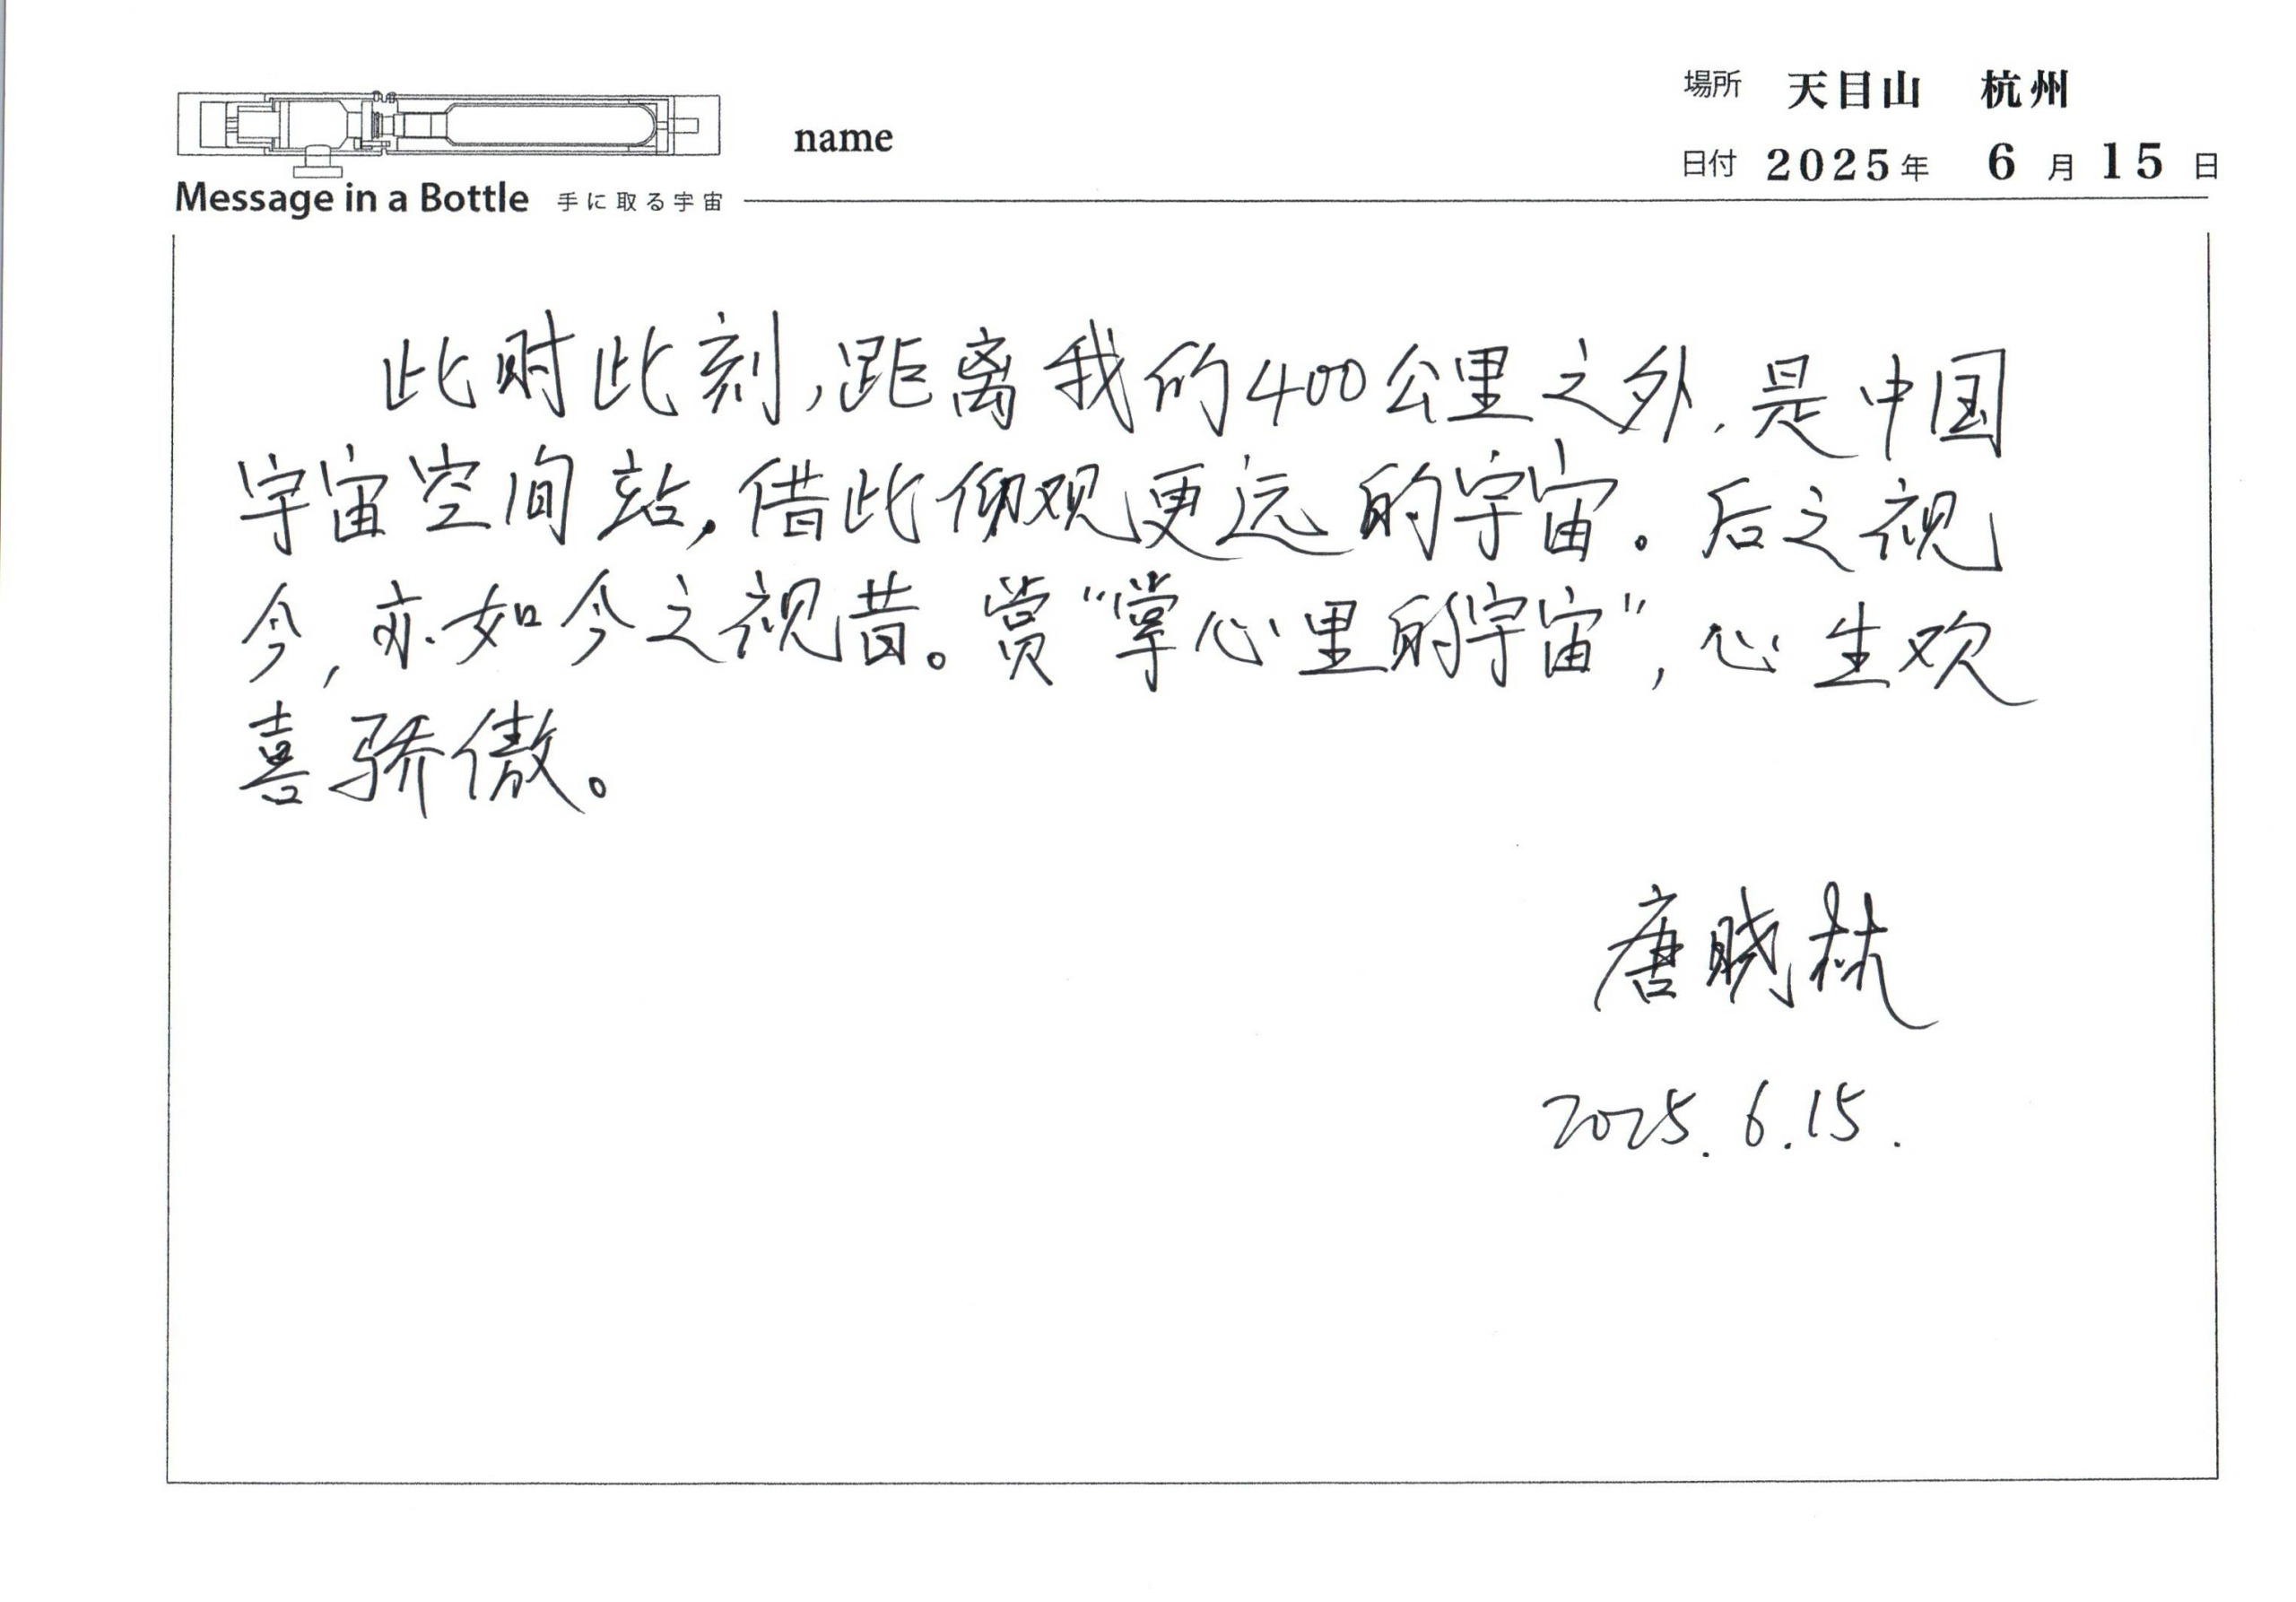 場所 天目山 杭州
name
日付 2025年 6月15日
Message in a Bottle 手に取る宇宙
此时此刻,距离我的400公里之外,是中国
宇宙空间站,借此仰观更远的宇宙。后之视
今,亦如今之视昔。赏“掌心里的宇宙”,心生欢
喜骄傲。
唐晓林
2025.6.15.